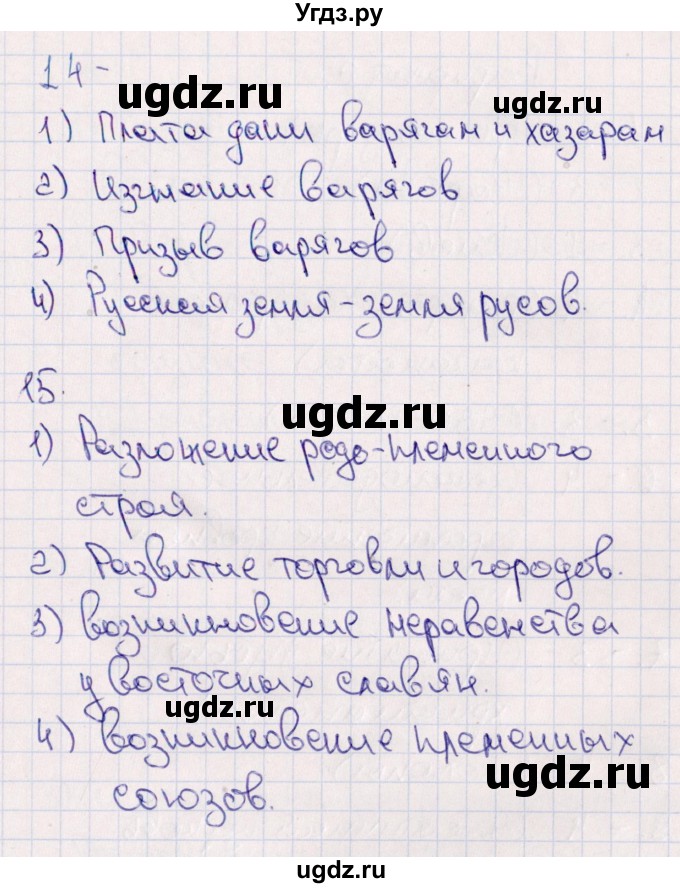 Угдз.ру
14-
ugdz.ru
1) Плата дани варягам и хазарам
2) Изгнание варягов
ugdz.ru
3) Призыв варягов
4) Русская земля - земля русов.
15.
ugdz.ru
1) Разложение родо-племенного
строя.
ugdz.ru
2) Развитие торговли и городов.
3) Возникновение неравенства
у восточных славян.
ugdz.ru
4) Возникновение племенных
ugdz.ru
союзов.
ugdz.ru